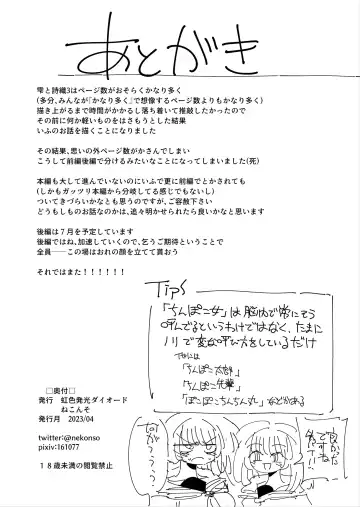 あとがき
雫と詩織3はページ数がおそらくかなり多く
(多分、みんなが「かなり多く」で想像するページ数よりもかなり多く)
描き上がるまで時間がかかるし落ち着いて推敲したかったので
その前に何か軽いものをはさもうとした結果
いふのお話を描くことになりました
その結果、思いの外ページ数がかさんでしまい
こうして前編後編で分けるみたいなことになってしまいました(死)
本編も大して進んでいないのにいふで更に前編でとかされても
(しかもガッツリ本編から分岐してる感じでもないし)
ついてきづらいかなとも思うのですが、ご容赦下さい
どうもしものお話なのかは、追々明かせられたら良いかなと思います
後編は７月を予定しています
後編ではね、加速していくので、乞うご期待ということで
全員――この場はおれの顔を立てて貰おう
それではまた！！！！！！
Tips
「ちんぽこ女」は脳内で常にそう
呼んでるというわけではなく、たまに
ノリで変な呼び方をしているだけ
他には
「ちんぽこ太郎」
「ちんぽこ先輩」
「ぽこぽこちんちん丸」などがある
□奥付□
発行　虹色発光ダイオード
ねこんそ
発行月　2023/04
twitter:@nekonso
pixiv:161077
１８歳未満の閲覧禁止
良かった
ですね
先パイ！
何がっ…？